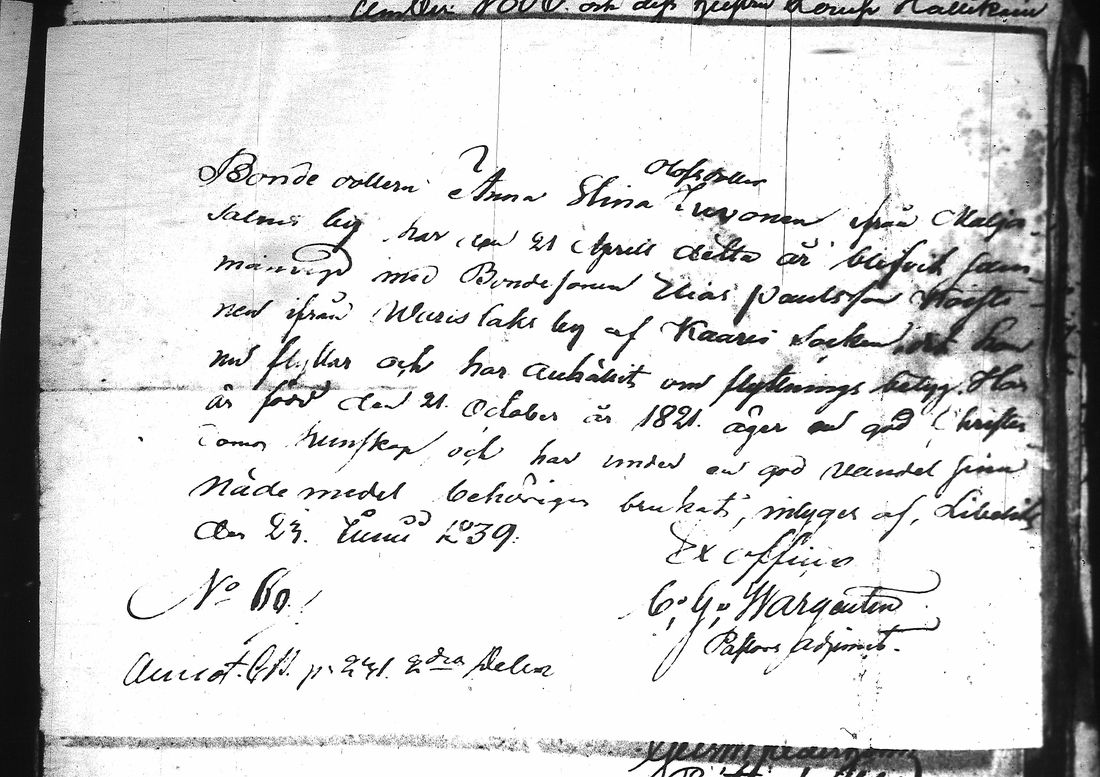 och dess hustru Lovisa
Olofsdotter
Bonde dottern Anna Elina Turonen ifrån Maljasalmi
by har den 21 Aprill detta år blifvit sam
manvigd med Bondesonen Elias Paulsson
nen ifrån Warislaks by af Kaavi Socken hon
nu flyttar och har anhållit om flyttnings betyg. Hon
är född den 21. October år 1821. äger en god Christen
doms kunskap och har under en god vandel sina
Nådemedel behörigen brukat, intygas af, Libelits
den 23. Junii 1839.
Ex officio
C. G. Wargentin
Pastors adjunct.
No 60
Annot. CB. p. 231. 2dra Delen